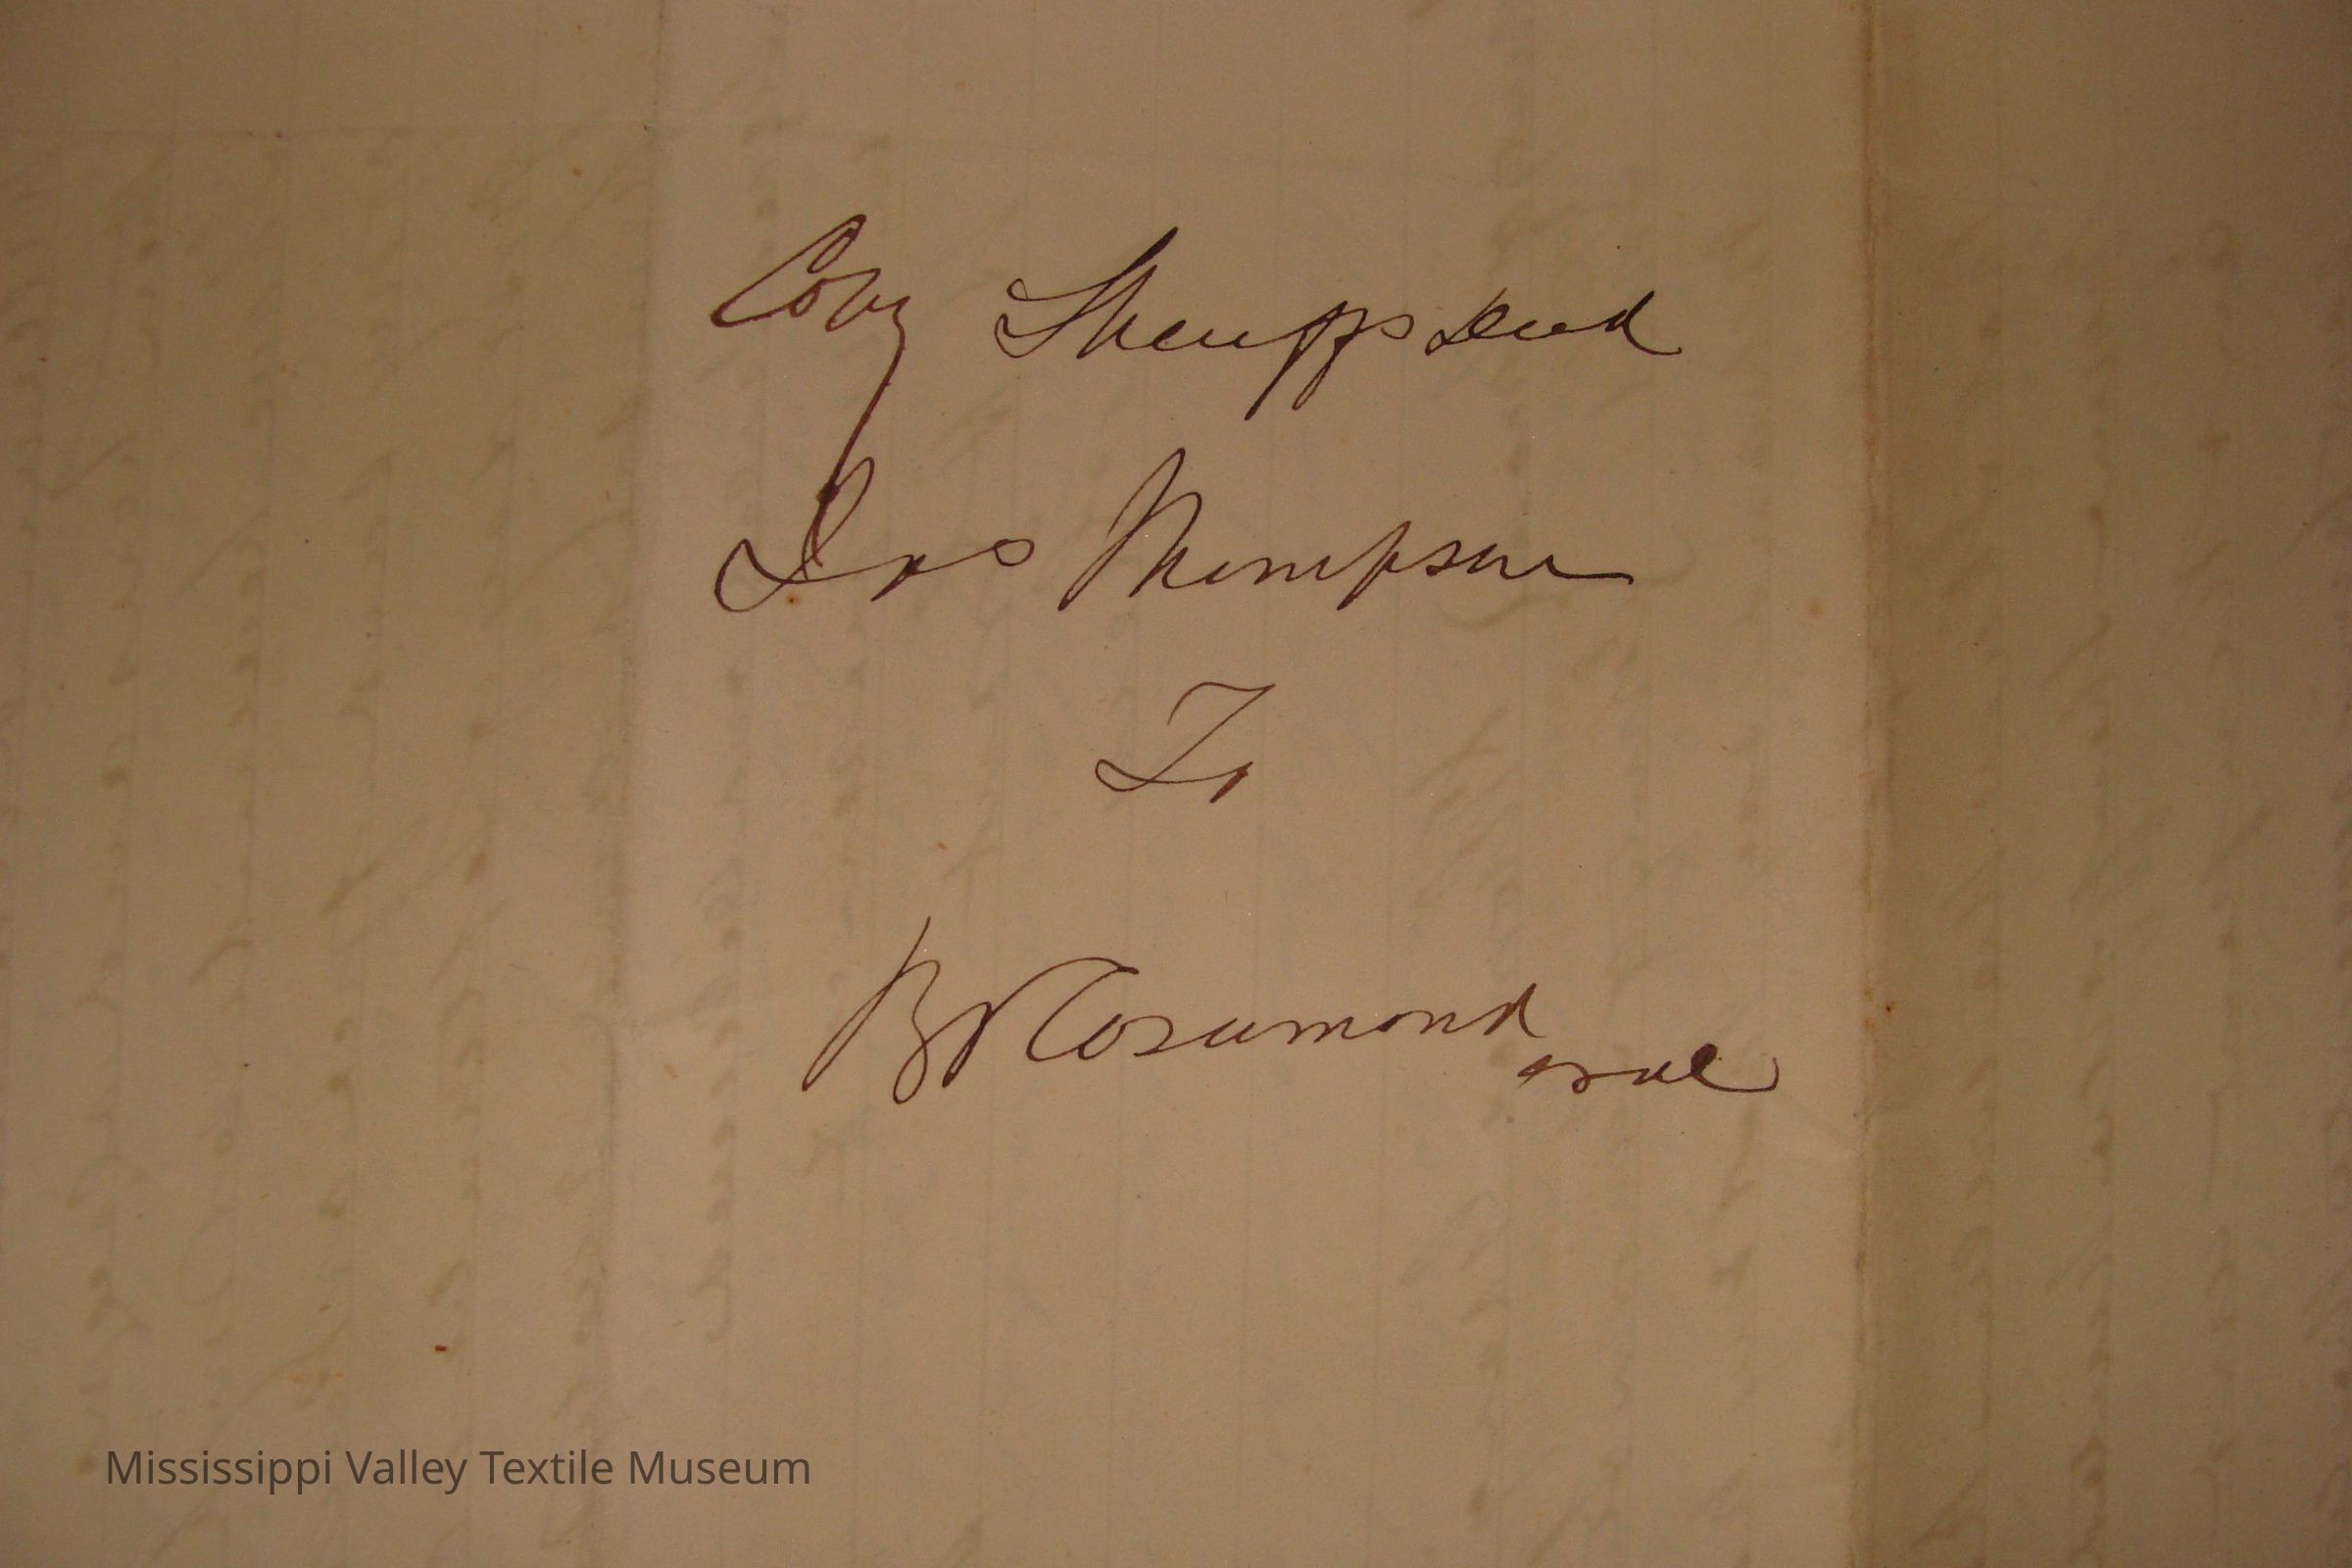 Copy Sheriffs Deed
Jas Thompson
To
B Rosamond
et al
Mississippi Valley Textile Museum